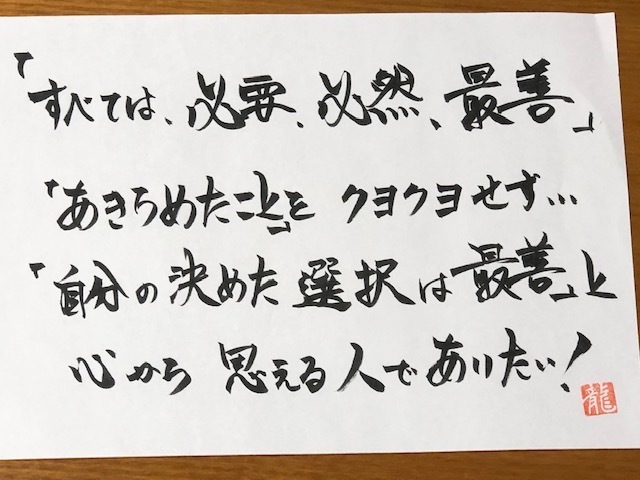 「すべては、必要、必然、最善」
「あきらめたこと」を クヨクヨせず…
「自分の決めた 選択は最善」と
心から 思える人でありたい！
龍